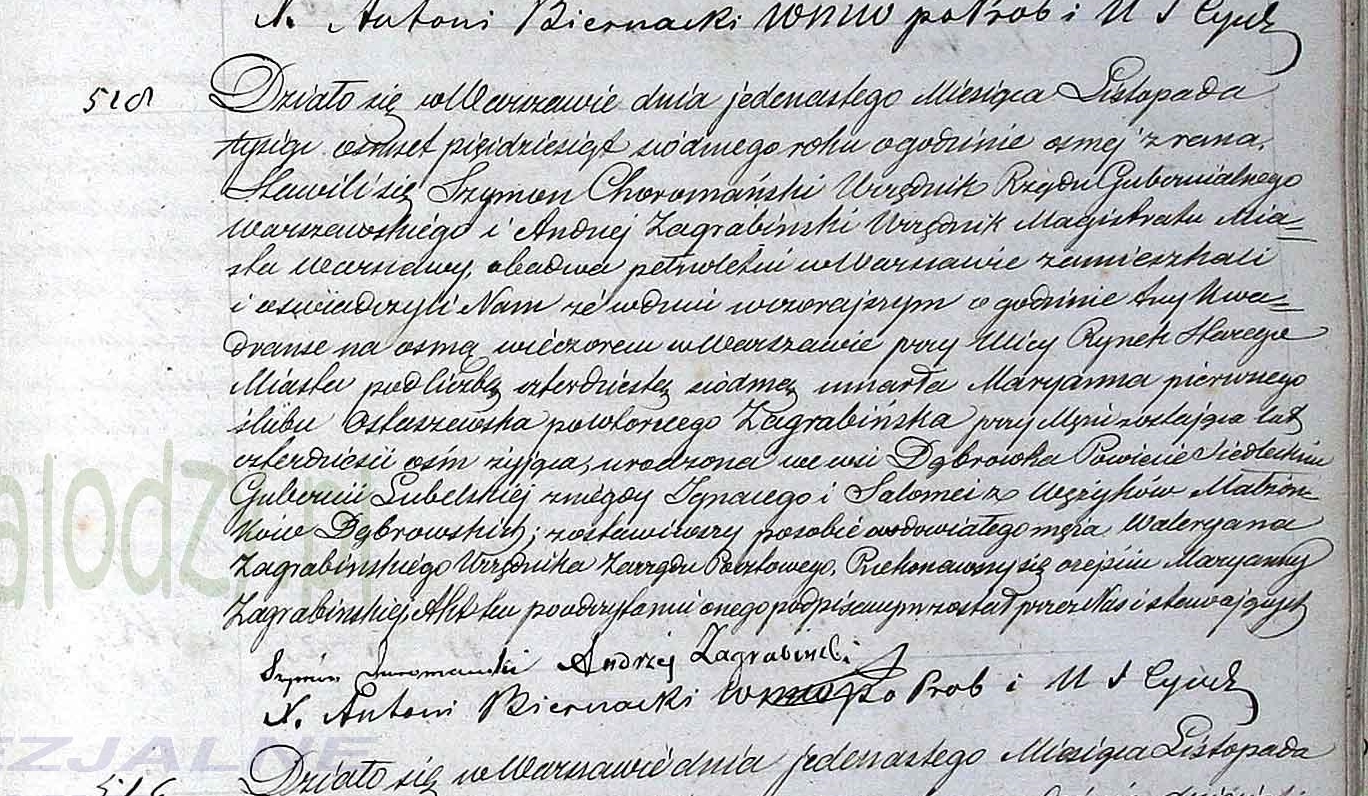 X. Antoni Biernacki Wmw po Prob i U S Cyw
518
Działo się w Warszawie dnia jedenastego Miesiąca Listopada
tysiąc ośmset pięidziesiąt siódmego roku o godzinie osmej z rana.
Stawili się Szymon Choromański Urzędnik Rządu Gubernialnego
Warszawskiego i Andrzej Zagrabiński Urzędnik Magistratu Mia=
sta Warszawy, obadwa pełnoletni w Warszawie zamieszkali
i oświadczyli Nam że w dniu wczorajszym o godzinie trzy Kwa=
dranse na osmą wieczorem w Warszawie przy Ulicy Rynek Starego
Miasta pod liczbą czterdziestą siódmą umarła Maryanna pierwszego
ślubu Ostaszewska powtórnego Zagrabińska przy Mężu zostająca lat
czterdzieści ośm żyjąca, urodzona we wsi Dąbrówka Powiecie Siedleckim
Gubernii Lubelskiej z niegdy Ignacego i Salomei z Wężyków Małżon-
ków Dąbrowskich; zostawiwszy po sobie owdowiałego męża Waleryana
Zagrabińskiego Urzędnika Zarządu Pocztowego. Przekonawszy się o zejściu Maryanny
Zagrabińskiej, Akt ten po odczytaniu onego podpisanym został przez Nas i stawających
Szymon Choromański Andrzej Zagrabiński
X. Antoni Biernacki po Prob i U S Cyw
Działo się w Warszawie dnia jedenastego Miesiąca Listopada
alodz.pl
EZJALNE